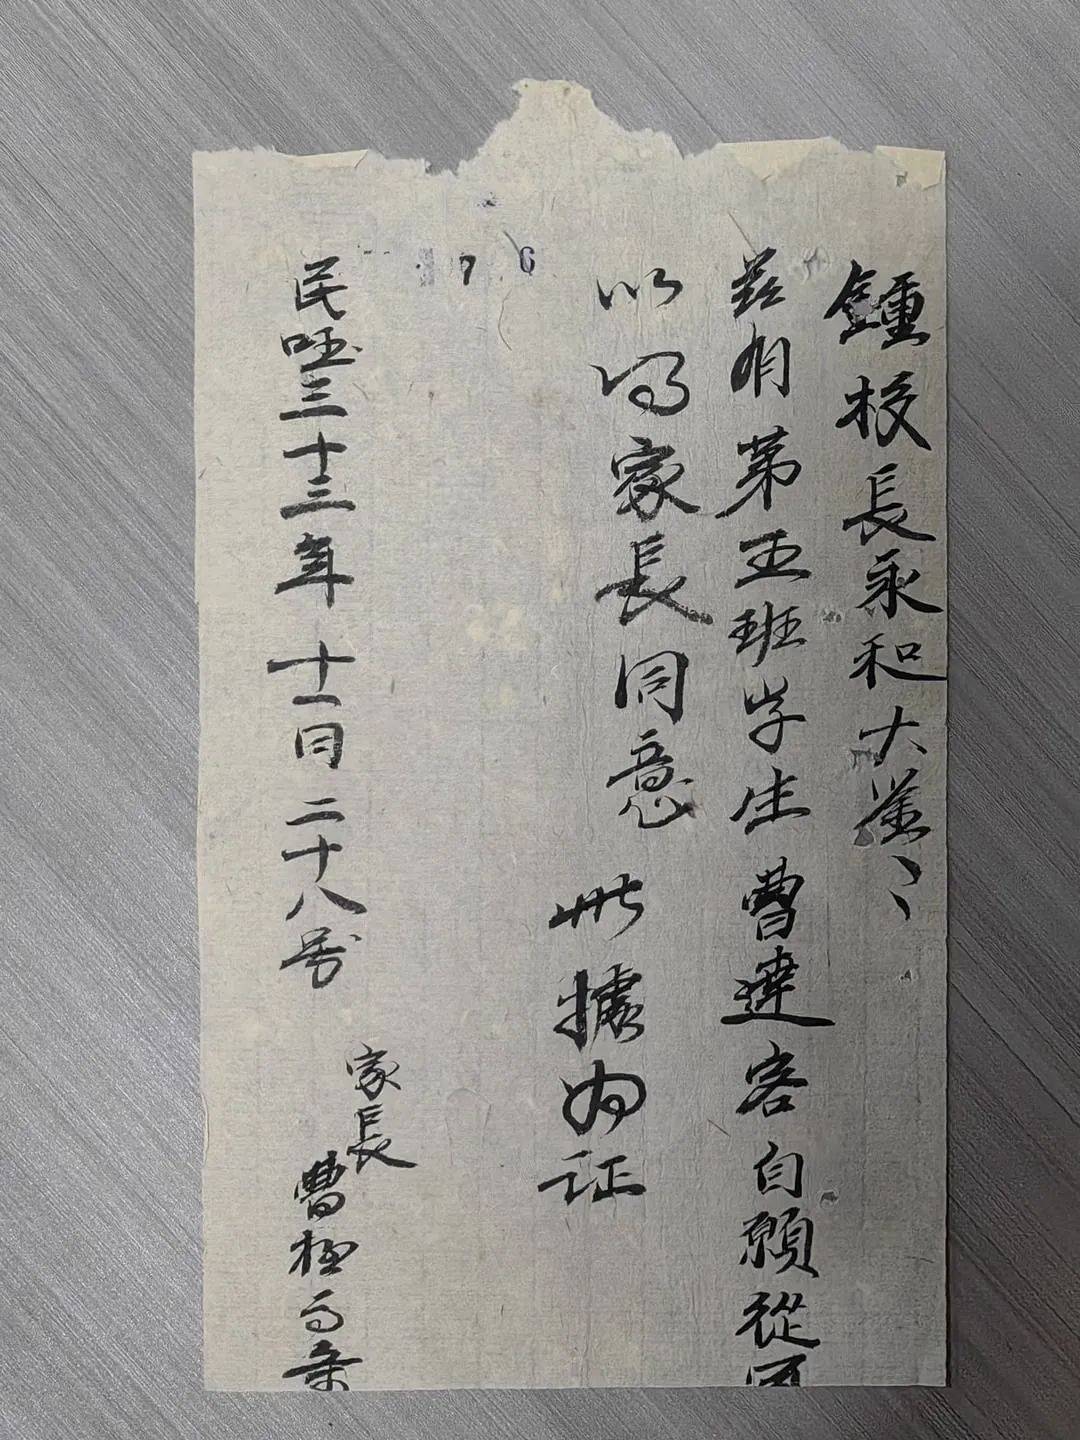 鍾校長永和大鑒
茲有第五班学生曹達客自願從
以得家長同意 此據为证
7 6
民国三十三年 十一月二十八号
家長
曹